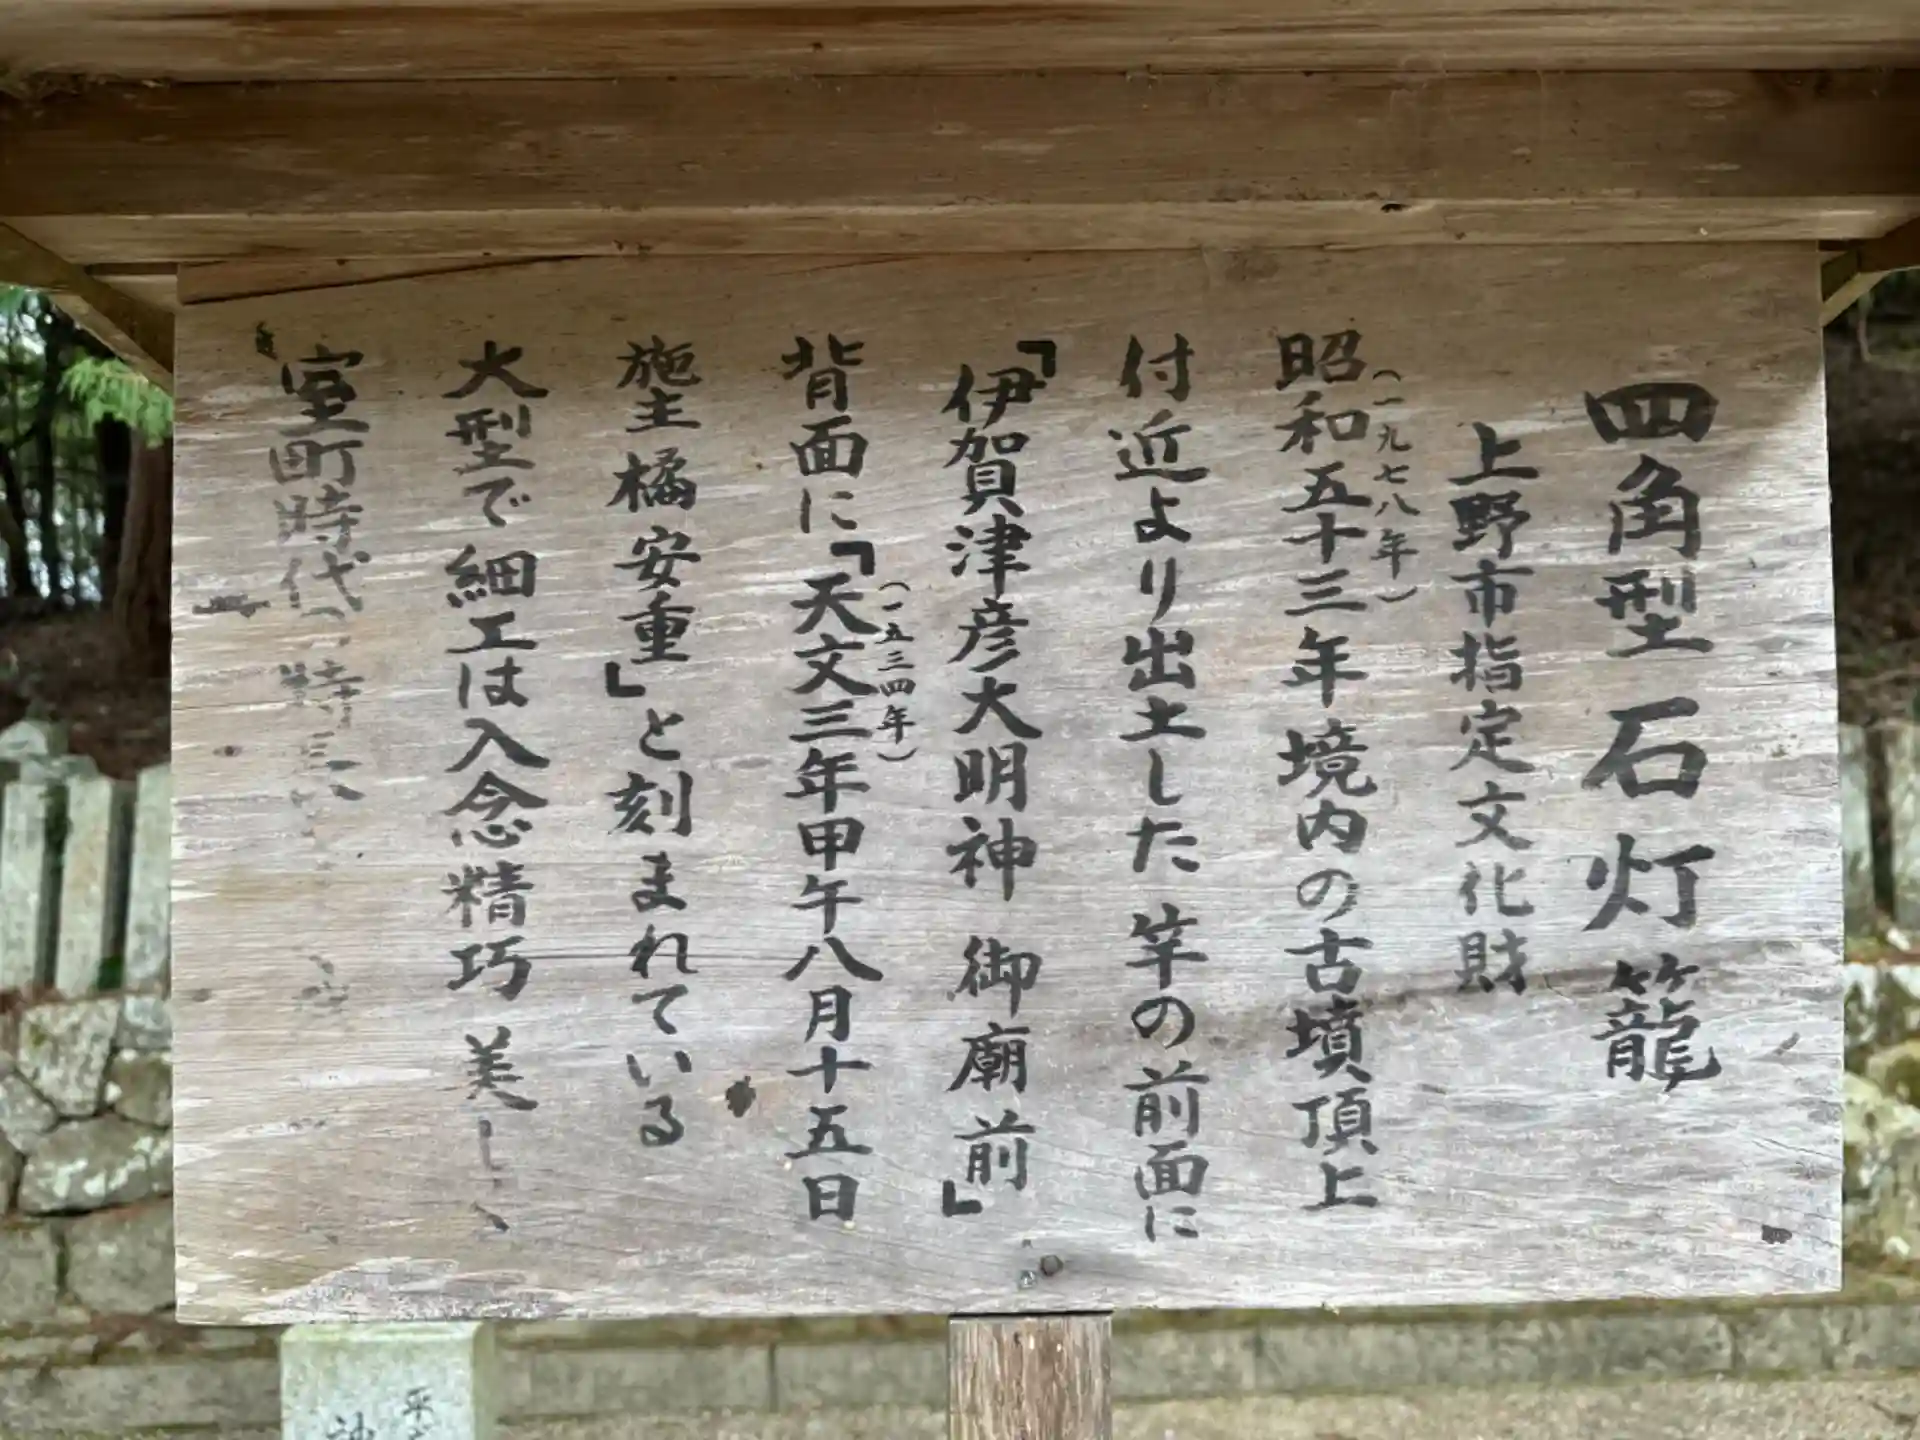 四角型石灯籠
上野市指定文化財
(一九七八年)
昭和五十三年境内の古墳頂上
付近より出土した竿の前面に
「伊賀津彦大明神 御廟前」
(一五三四年)
背面に「天文三年甲午八月十五日
施主橘安重」と刻まれている
大型で細工は入念精巧 美し
室町時代の特
平
神